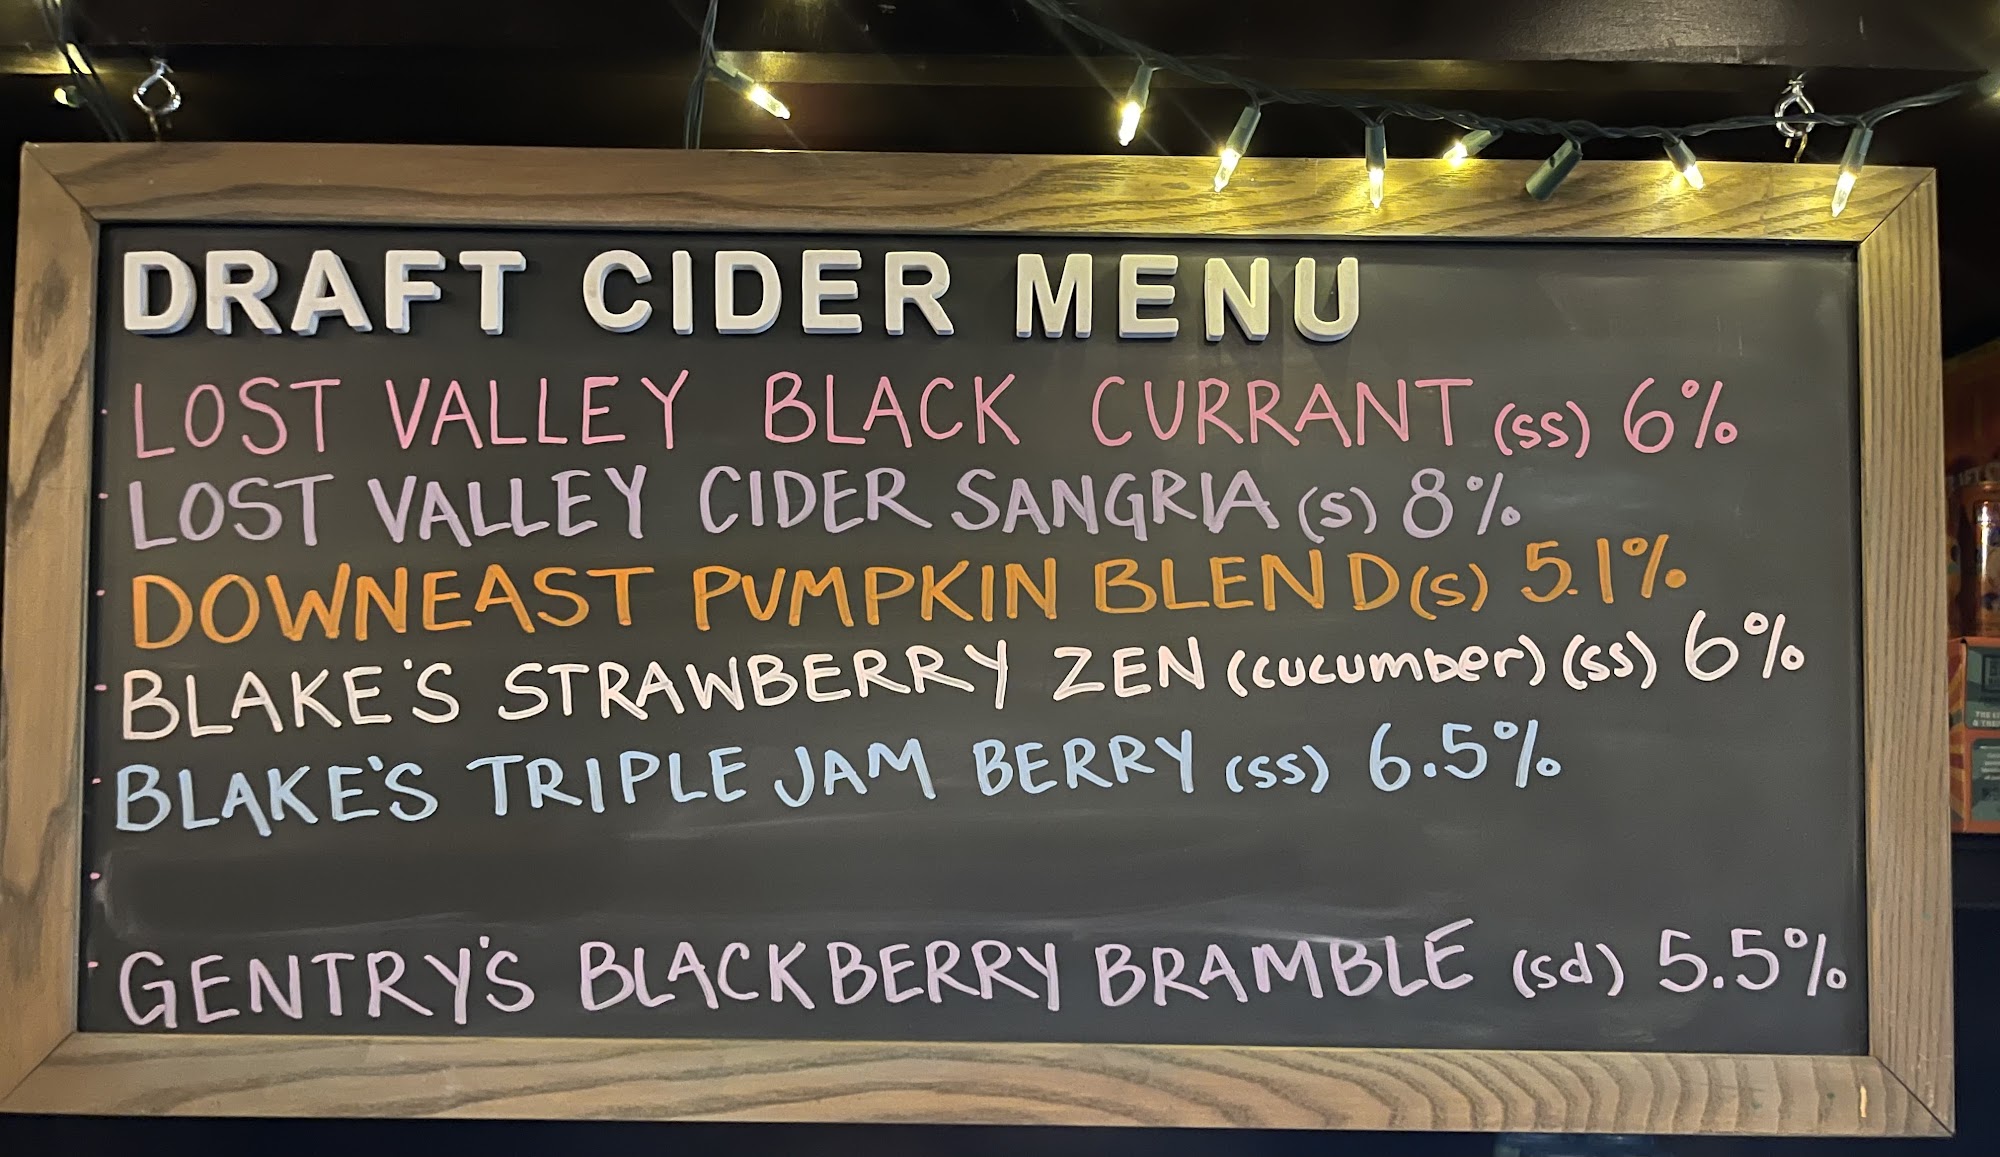 DRAFT CIDER MENU
LOST VALLEY BLACK CURRANT (SS) 6%
LOST VALLEY CIDER SANGRIA (S) 8%
DOWNEAST PUMPKIN BLEND (S) 5.1%
BLAKE'S STRAWBERRY ZEN (cucumber) (SS) 6%
BLAKE'S TRIPLE JAM BERRY (SS) 6.5%
GENTRY'S BLACKBERRY BRAMBLE (sd) 5.5%